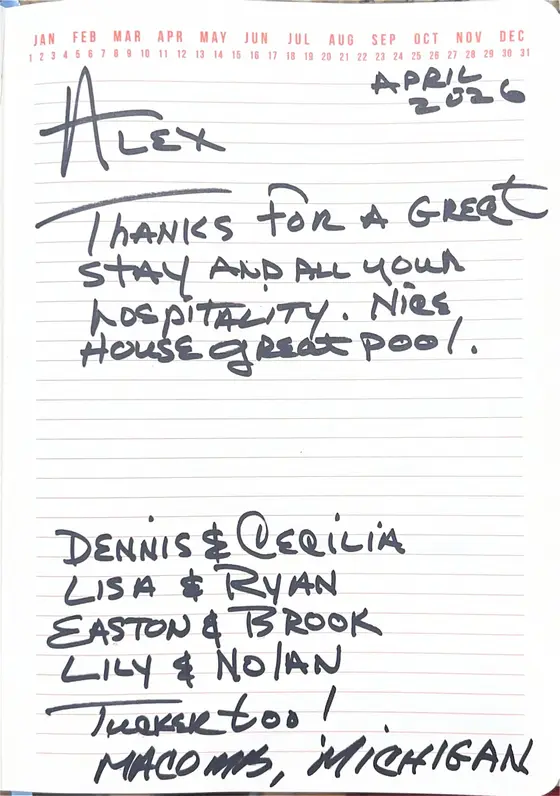 JAN FEB MAR APR MAY JUN JUL AUG SEP OCT NOV DEC
1 2 3 4 5 6 7 8 9 10 11 12 13 14 15 16 17 18 19 20 21 22 23 24 25 26 27 28 29 30 31
APRIL
2026
ALEX
THANKS FOR A GREAT
STAY AND ALL YOUR
HOSPITALITY. NICE
HOUSE GREAT POOL.
DENNIS & CECILIA
LISA & RYAN
EASTON & BROOK
LILY & NOLAN
TUCKER too!
MACOMB, MICHIGAN